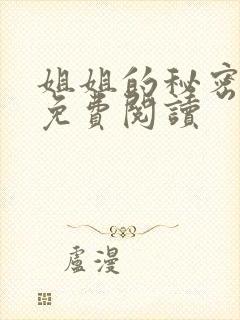 姐姐的秘密
免費閱讀
盧漫